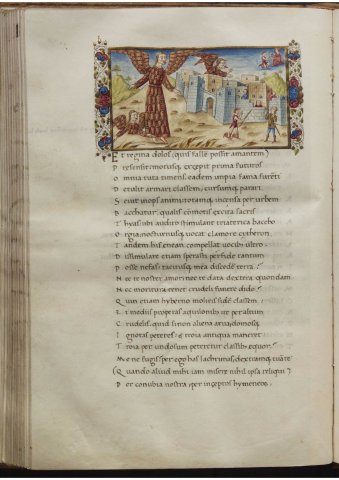 E t regina dolos (quis fallere possit amantem?)
P resensit: motusq; excepit prima futuros
O mnia tuta timens. eadem impia fama furenti
D etulit armari classem, cursumq; parari.
S evit inops animi, totamq; incensa per urbem
B acchatur: qualis commotis excita sacris
T hyas: ubi audito stimulant trieterica baccho
O rgia, nocturnusq; vocat clamore cytheron
T andem his enean compellat vocibus ultro.
D issimulare etiam sperasti perfide tantum
P osse nefas: tacitusq; mea discedere terra?
N ec te noster amor: nec te data dextera quondam
N ec moritura tenet crudeli funere dido?
Q uin etiam hyberno moliris sidere classem:
E t mediis properas aquilonibus ire per altum
C rudelis. quid si non aliena arva, domosq;
I gnotas peteres: et troia antiqua maneret
T roia per undosum peteretur classibus equor?
M e ne fugis? per ego has lachrimas, dextramq; tuam te
(Q uando aliud mihi iam misere nihil ipsa reliqui)
P er conubia nostra: per inceptos hymeneos.